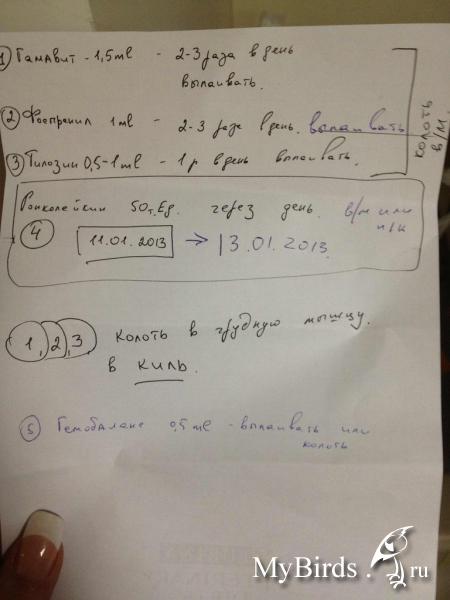 1 Гамавит - 1,5 ml - 2-3 раза в день
выпаивать.
2 Фоспренил 1 ml - 2-3 раза в день. выпаивать
3 Тилозин 0,5-1 ml - 1 р в день выпаивать.
колоть
в/м.
Ронколейкин 50 т.Ед. через день. в/м или
п/к
4 11.01.2013 → 13.01.2013
1, 2, 3 колоть в грудную мышцу.
в киль.
5 Гемобаланс 0,5 ml - выпаивать или
колоть
MyBirds.ru